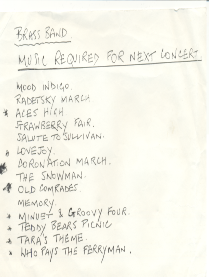 BRASS BAND.
MUSIC REQUIRED FOR NEXT CONCERT
MOOD INDIGO.
RADETSKY MARCH
* ACES HIGH
STRAWBERRY FAIR.
SALUTE TO SULLIVAN.
* LOVEJOY.
CORONATION MARCH.
THE SNOWMAN.
* OLD COMRADES.
MEMORY.
* MINUET & GROOVY FOUR.
* TEDDY BEARS PICNIC
* TARA'S THEME.
* WHO PAYS THE FERRYMAN.